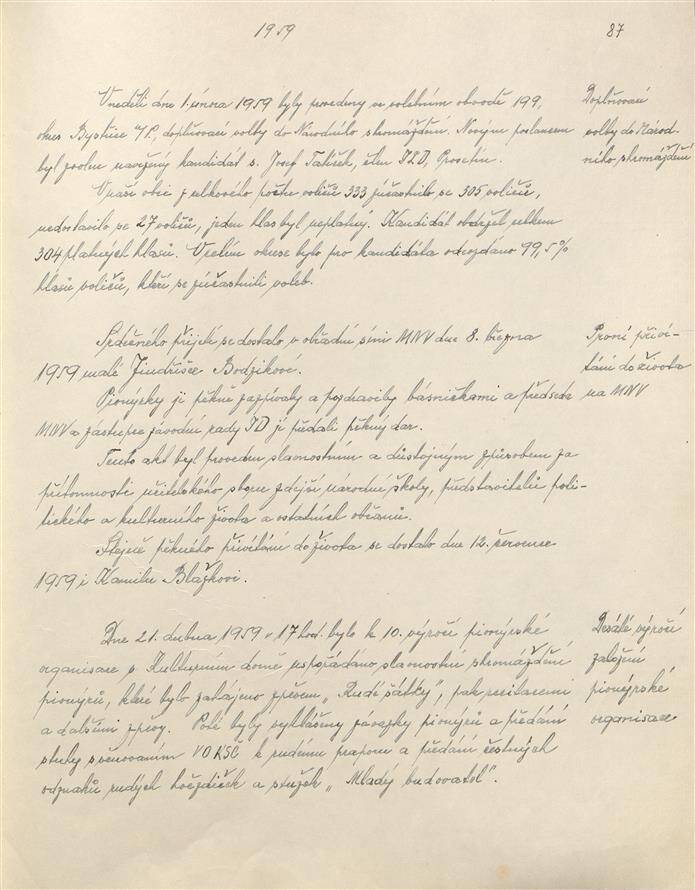 1959
87
V neděli dne 1. února 1959 byly provedeny ve volebním obvodě 199,
okres Bystřice n/P., doplňovací volby do Národního shromáždění. Novým poslancem
byl zvolen navržený kandidát s. Josef Tatíček, člen JZD, Prosetín.
V naší obci z celkového počtu voličů 333 zúčastnilo se 305 voličů,
nedostavilo se 27 voličů, jeden hlas byl neplatný. Kandidát obdržel celkem
304 platných hlasů. V celém okrese bylo pro kandidáta odevzdáno 99,5%
hlasů voličů, kteří se zúčastnili voleb.
Doplňovací
volby do Národ-
ního shromáždění
Srdečného přijetí se dostalo v obřadní síni MNV dne 8. března
1959 malé Jindřišce Bodzikové.
Pionýrky jí pěkně zazpívaly a pozdravily básničkami a předseda
MNV a zástupce závodní rady JD jí předali pěkný dar.
Tento akt byl proveden slavnostním a důstojným způsobem za
přítomnosti učitelského sboru zdejší národní školy, představitelů poli-
tického a kulturního života a ostatních občanů.
Stejně pěkného přivítání do života se dostalo dne 12. července
1959 i Kamilu Blažkovi.
První přiví-
tání do života
na MNV
Dne 21. dubna 1959 v 17 hod. bylo k 10. výročí pionýrské
organisace v Kulturním domě uspořádáno slavnostní shromáždění
pionýrů, které bylo zahájeno zpěvem „Rudé šátky", pak recitacemi
a dalšími zpěvy. Poté byly vyhlášeny závazky pionýrů a předání
stuhy s věnováním VO KSČ k rudému praporu a předání čestných
odznaků rudých hvězdiček a stužek „Mladý budovatel".
Desáté výročí
založení
pionýrské
organisace